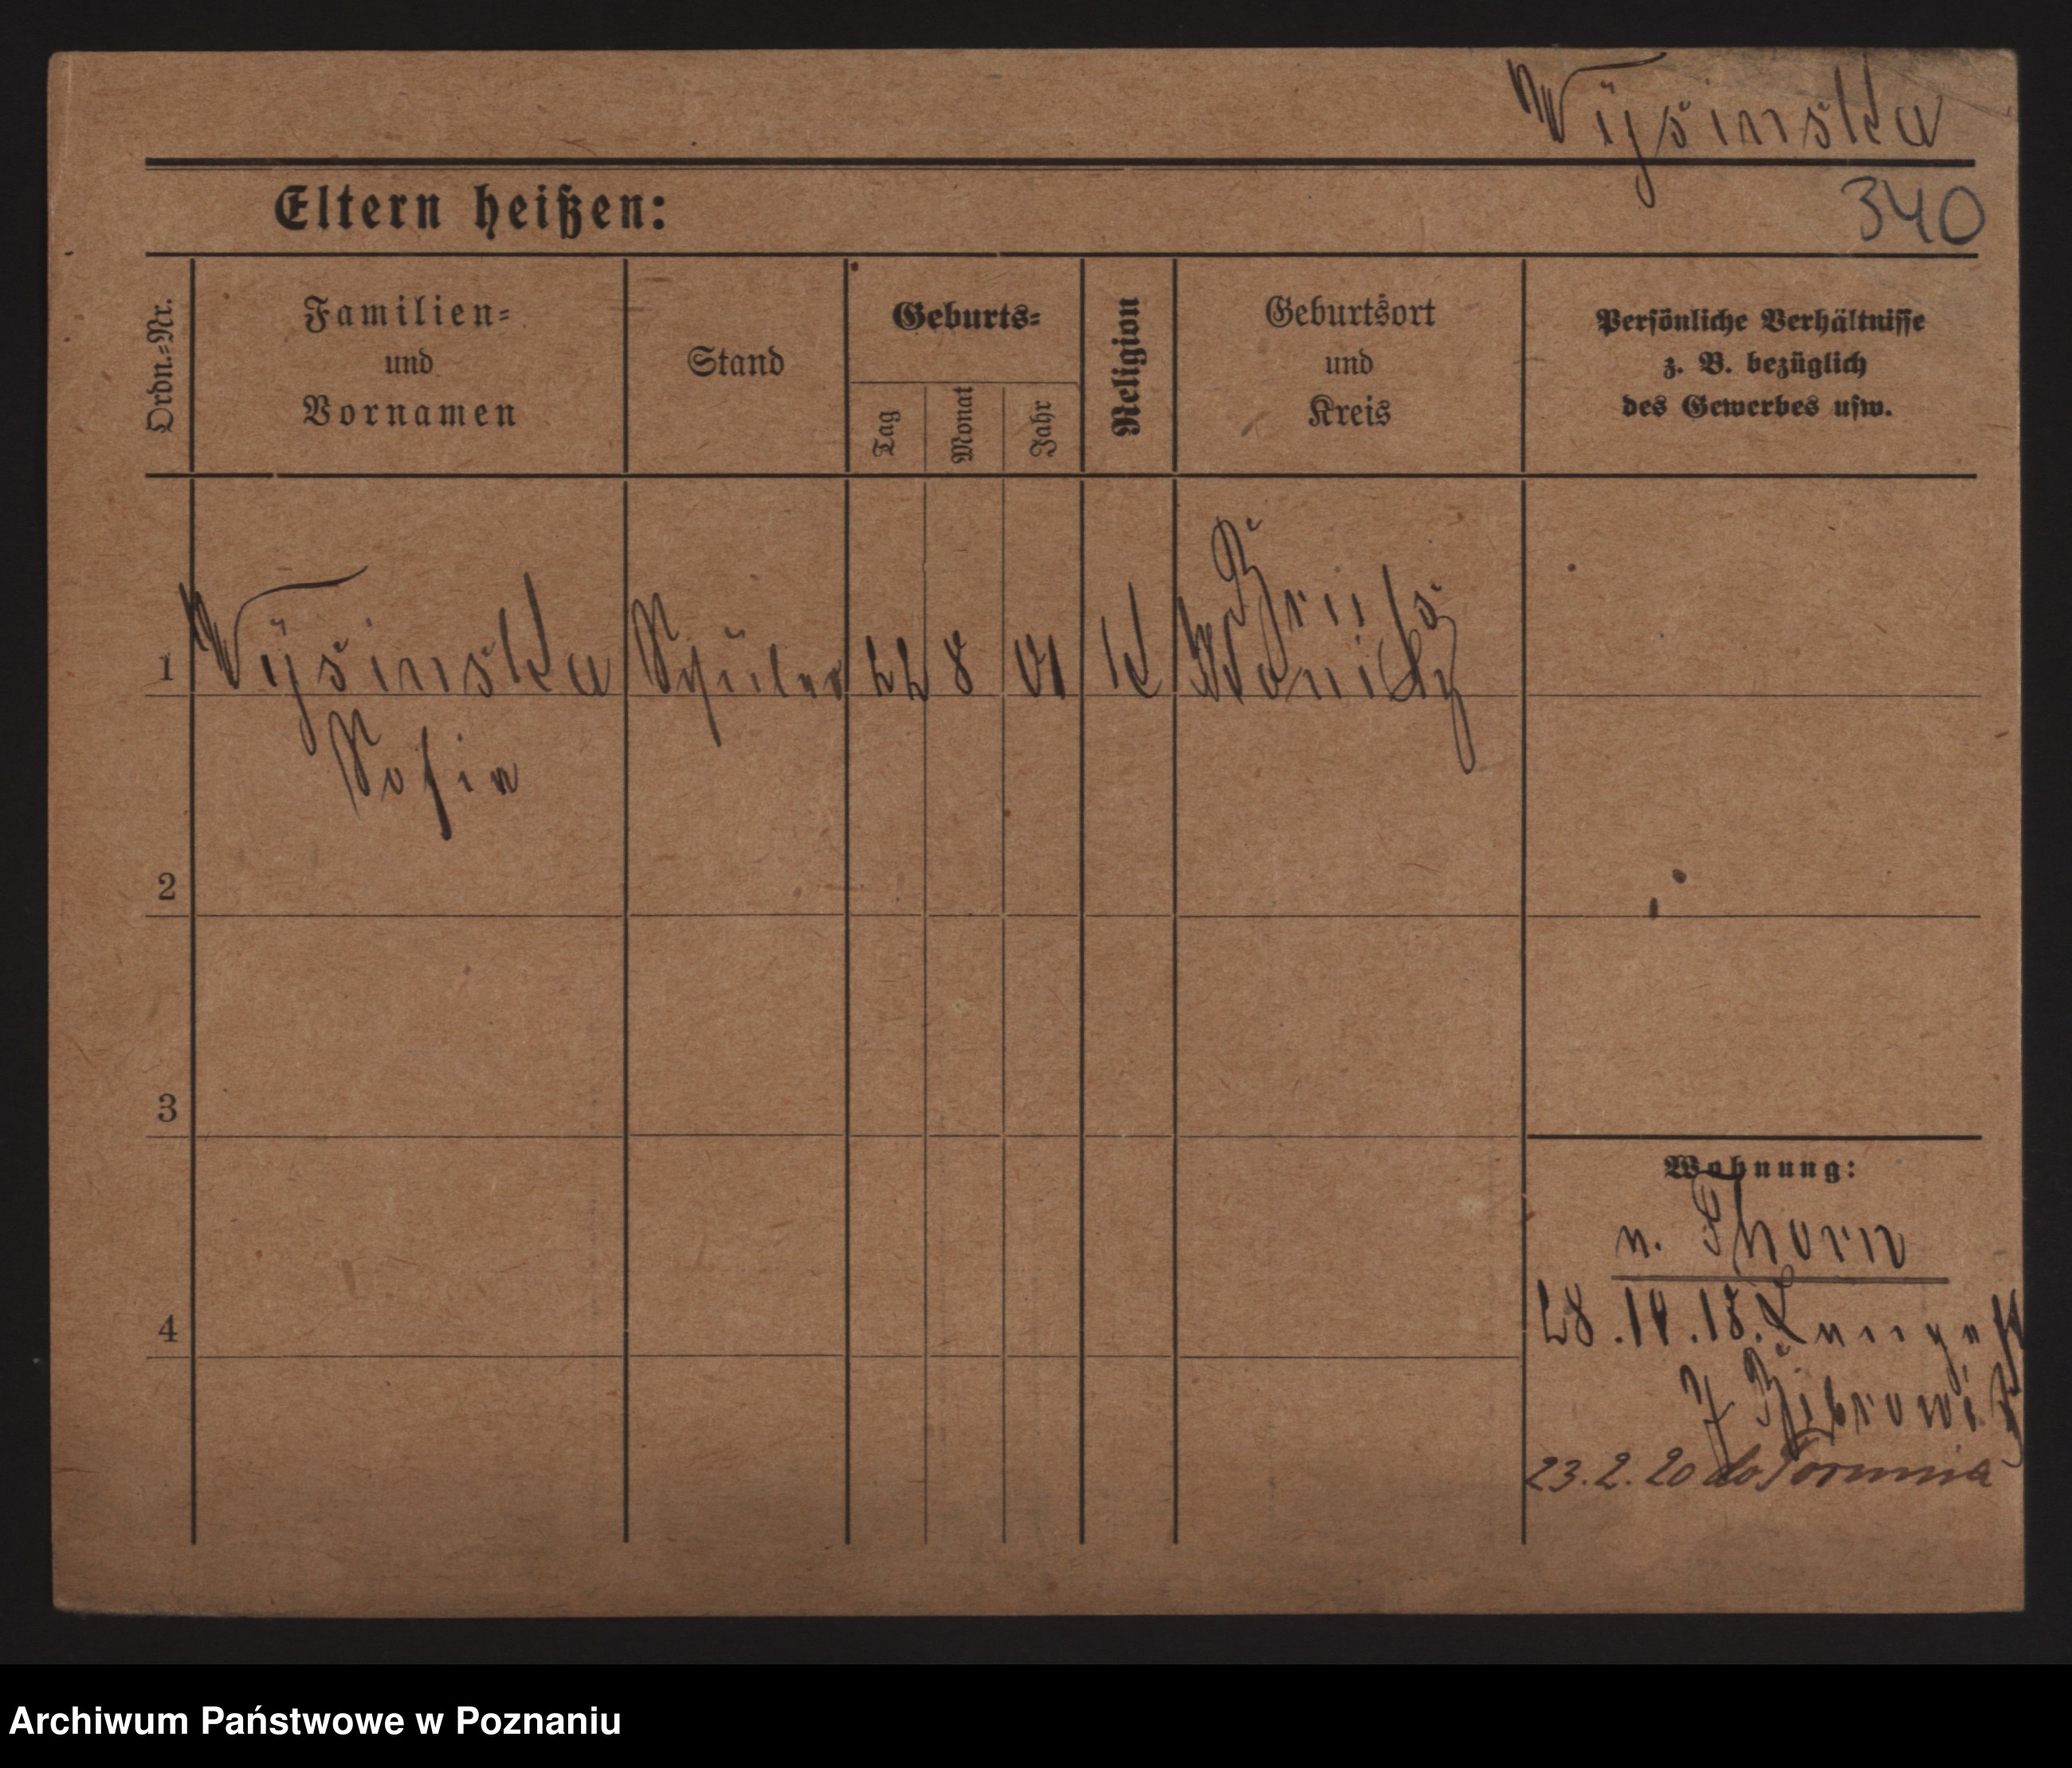 Wÿsinska
340
Eltern heißen:
Ordn.-Nr.
Familien-
und
Vornamen
Stand
Geburts-
Tag
Monat
Jahr
Religion
Geburtsort
und
Kreis
Persönliche Verhältnisse
z. B. bezüglich
des Gewerbes usw.
1 Wÿsinska Schüler 22 8 01 K
Sofia
2
3
Wohnung:
n. Thorn
4
23.2.20 do Torunia
Archiwum Państwowe w Poznaniu